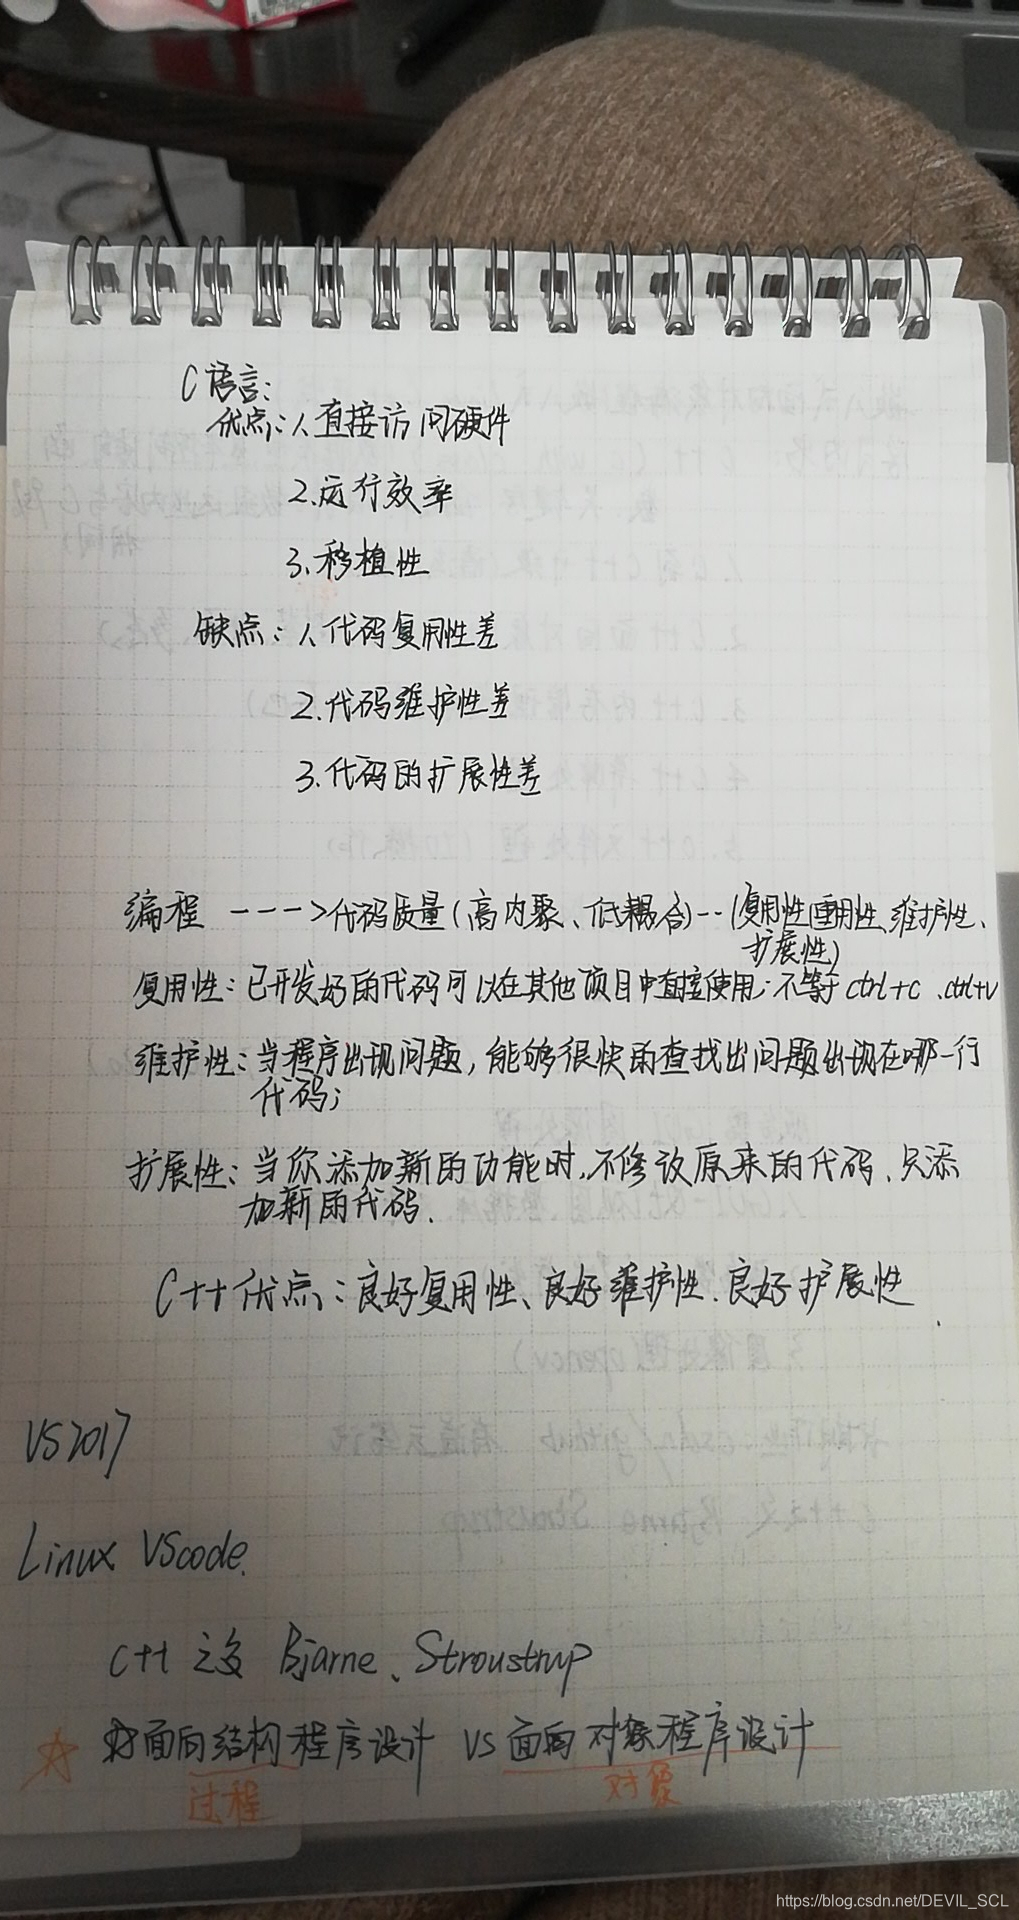 C语言:
优点:1.直接访问硬件
2.运行效率
3.移植性
缺点:1.代码复用性差
2.代码维护性差
3.代码的扩展性差
编程 ---->代码质量(高内聚、低耦合)--(复用性重用性、维护性、
扩展性)
复用性:已开发好的代码可以在其他项目中直接使用;不等于ctrl+c、ctrl+v
维护性:当程序出现问题,能够很快的查找出问题出现在哪一行
代码;
扩展性:当你添加新的功能时,不修改原来的代码、只添
加新的代码.
C++优点:良好复用性、良好维护性、良好扩展性
VS2017
Linux VScode.
C++之父 Bjarne、Stroustrup
面向结构程序设计 VS 面向对象程序设计
过程 对象
https://blog.csdn.net/DEVIL_SCL